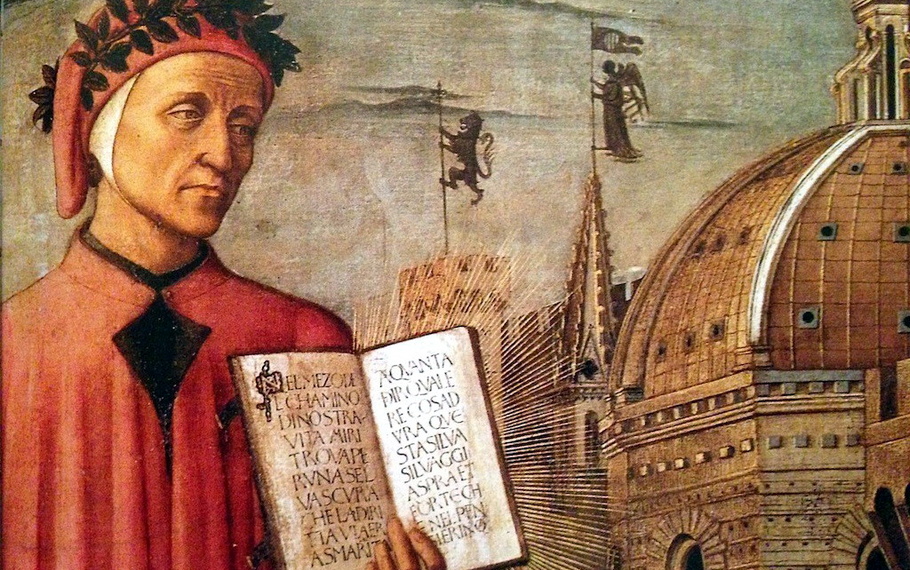 NEL MEZO DE
L CHAMINO
DI NOSTRA
VITA MIRI
TROVA PE
R UNA SEL
VA SCURA
CHE LA DIRI
TIA VIA ER
A SMARIT
A QVANTA
DIR QVALE
RE COSA D
VRA QVE
STA SILVA
SILVAGGI
ASPRA ET
FORTE CH
E NEL PEN
SIER INO